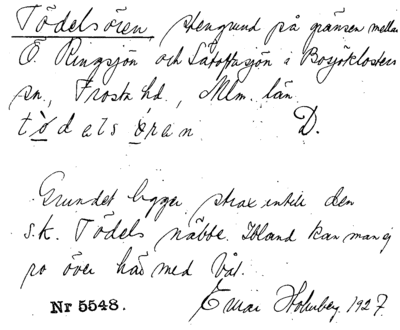 Tödelsören, stengrund på gränsen mellan
Ö. Ringsjön och Sätoftasjön i Bosjöklosters
sn, Frosta hd., Mlm. län.
tödelsören D.
Grundet ligger strax intill den
s.k. Tödels näbbe. Ibland kan man ej
ro över här med båt.
Nr 5548. Einar Holmberg, 1927.